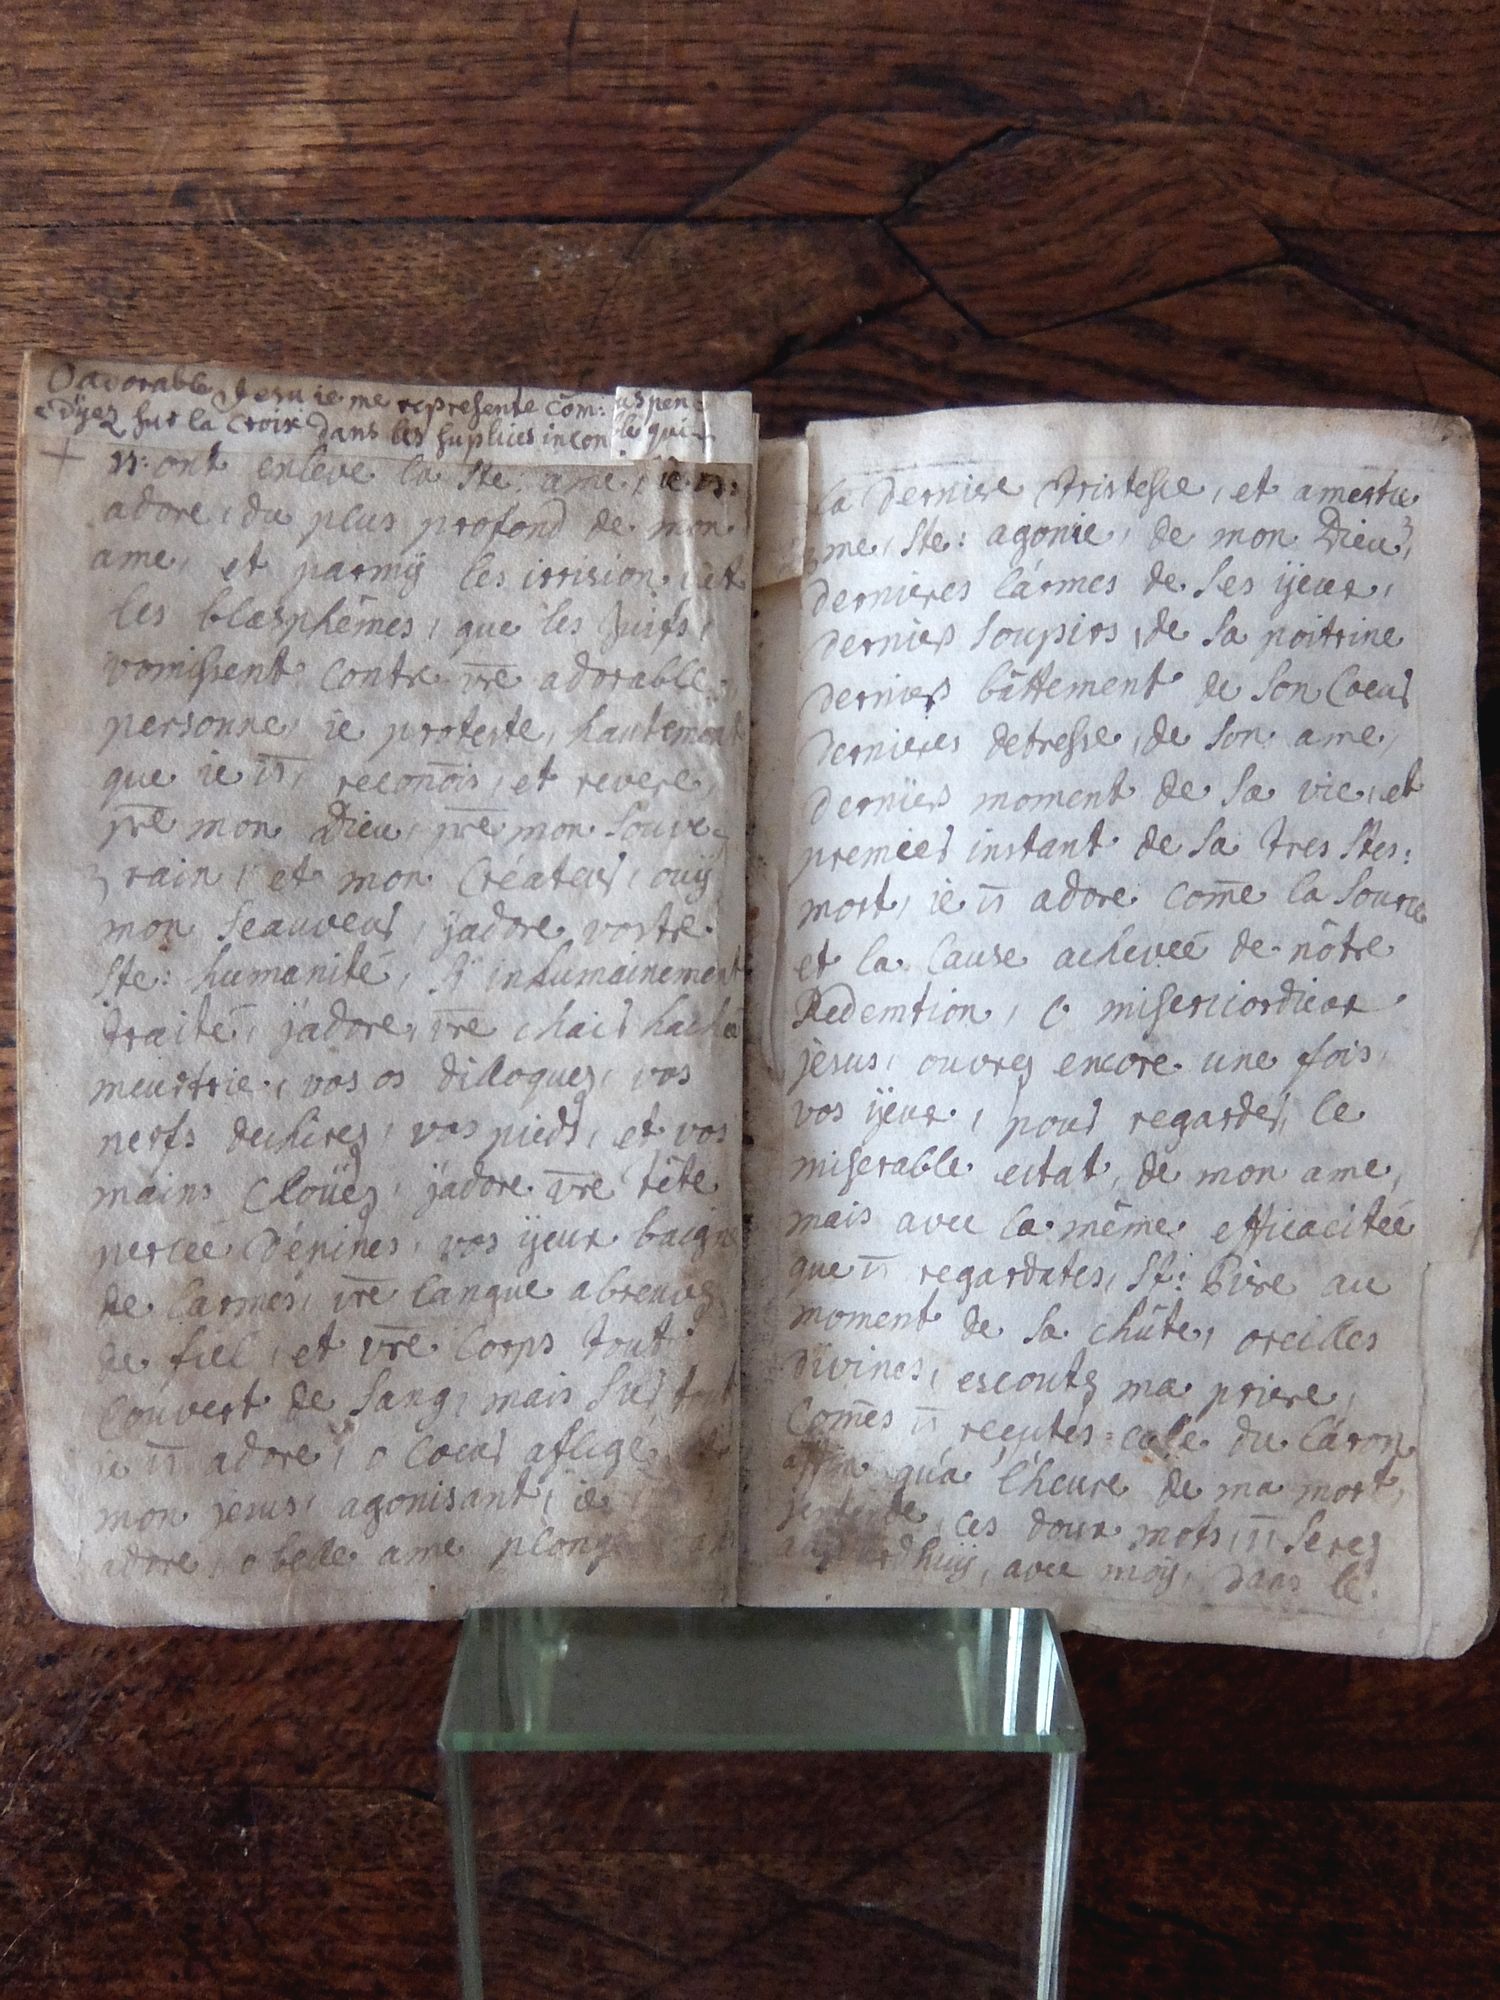 O adorable Jesu ie me represente com: uspen=
dÿez sur la croix dans les suplices incon ble qui
+ vs: ont enleve la Ste: ame, ie vs:
adore, du plus profond de mon
ame, et parmÿ les irrision, et
les blasphêmes, que les Juifs,
vomissent contre vr̄e adorable
personne, ie proteste, hautement
que ie vs̄, recon̄ois, et revere,
pr̄e mon Dieu, pr̄e mon souve=
rain, et mon Créateur, ouÿ
mon seauveur, j'adore vostre
Ste: humanité, sÿ inhumainement
traité, j'adore, vr̄e chair haché
meurtrie, vos os diloques, vos
nerfs dechires, vos pieds, et vos
mains cloües, j'adore vr̄e tête
perceé d'épines, vos ÿeux baigne
de larmes, vr̄e langue abreuvez
de fiel, et vr̄e corps tout
couvert de sang, mais sur tout
ie vs̄ adore, o coeur afligé
mon jesus, agonisant, ie
adore, o belle ame plong
la derniere tristesse, et amertu
me, Ste: agonie, de mon Dieu,
dernieres lármes de ses ÿeux,
derniers soupirs, de sa poitrine
derniers bâttement de son coeur
dernieres detresse, de son ame,
dernÿers moment de sa vie, et
premier instant de sa tres Stes:
mort, ie vs̄ adore com̄e la source
et la cause acheveé de nôtre
Redemtion, o misericordieux
jesus, ouvres encore une fois,
vos ÿeux, pour regarder, le
miserable estat, de mon ame,
mais avec la même efficacitée
que vs̄ regardates, St: Piere au
moment de sa chûte, oreilles
divines, escoutez ma priere,
com̄es vs̄ reçutes celle du láron,
affin qu'a l'heure de ma mort,
j'entende, ces doux mots, vs̄ seres
aujourdhuÿ, avec moÿ, dans le